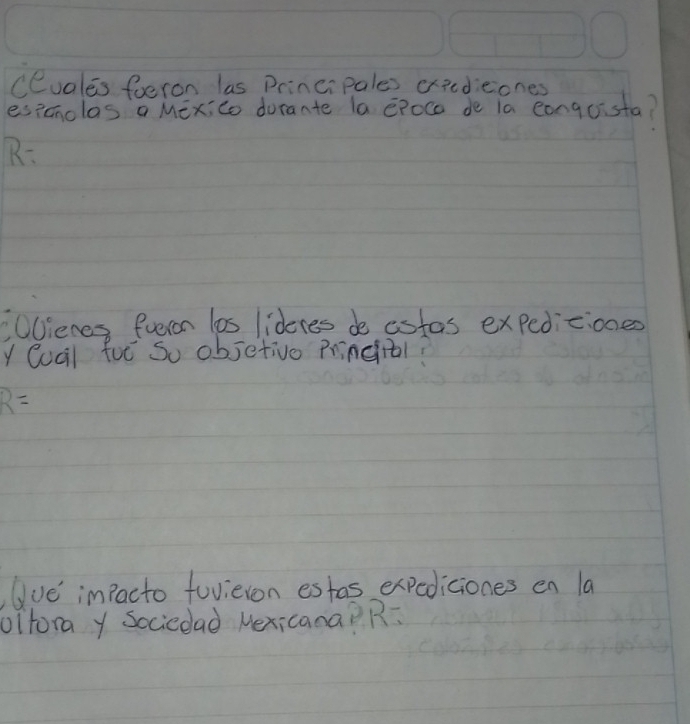 ¿Cuales fueron las Principales expediciones
españolas a México durante la época de la conquista?
R=
¿Quienes fueron los lideres de estas expediciones
y Cual fué su objetivo Principal?
R=
¿Qué impacto tuvieron estas expediciones en la
ultora y Sociedad Mexicana? R=